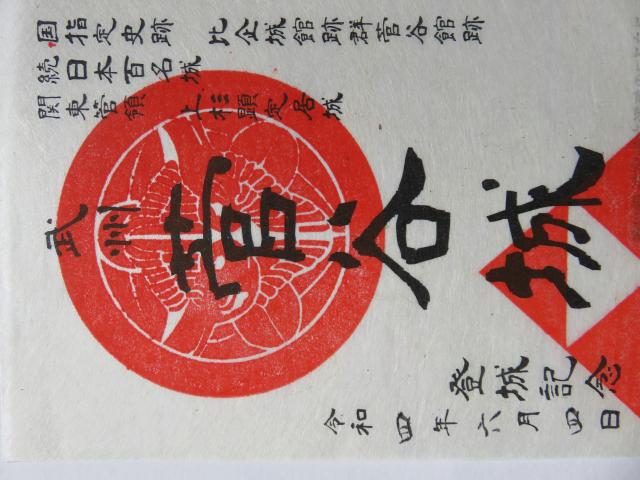 国指定史跡 比企城館跡群菅谷館跡
続日本百名城
関東管領 上杉顕定居城
武州
菅谷城
登城記念
令和四年六月四日